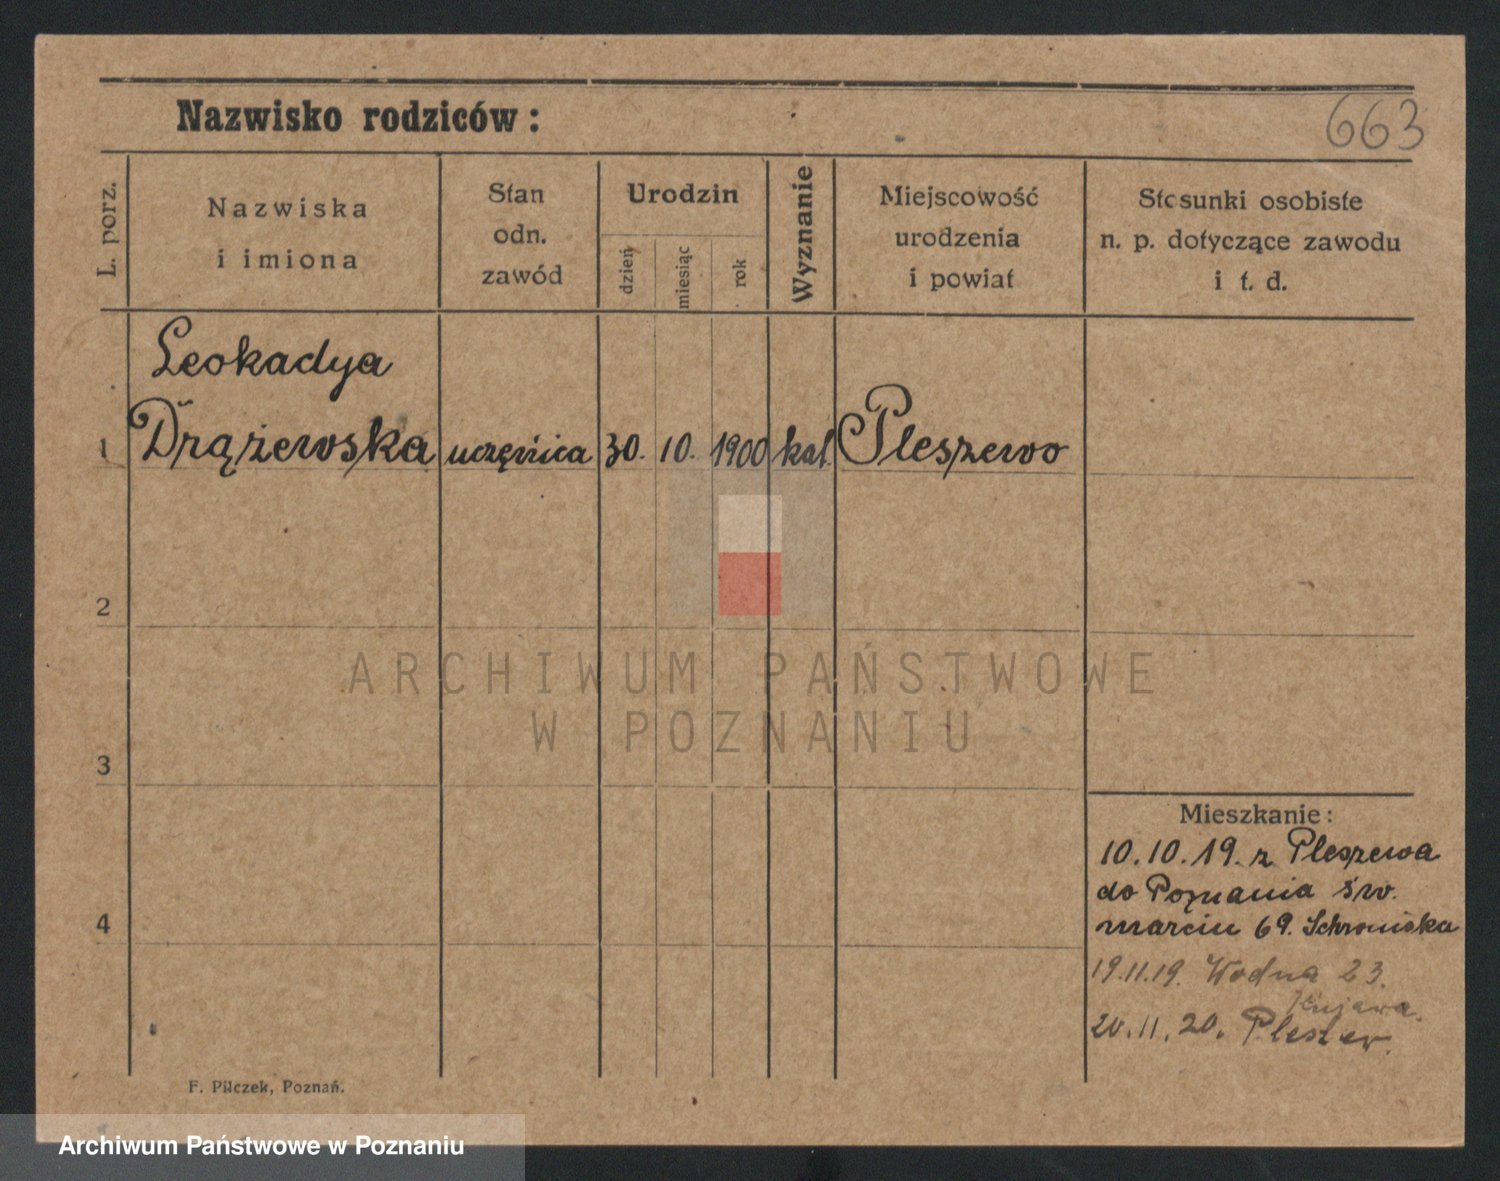 Nazwisko rodziców:
663
L. porz.
Nazwiska
i imiona
Stan
odn.
zawód
Urodzin
dzień
miesiąc
rok
Wyznanie
Miejscowość
urodzenia
i powiat
Stosunki osobiste
n. p. dotyczące zawodu
i t. d.
Leokadya
1 Drążewska uczęnica 30. 10. 1900 kat. Pleszewo
2
ARCHIWUM PAŃSTWOWE
W POZNANIU
3
Mieszkanie:
10.10.19. z Pleszewa
do Poznania św.
4
marcin 69. Schroniska
19.11.19. Wodna 23.
Kujawa.
20.11.20. Pleszew.
F. Pilczek, Poznań.
Archiwum Państwowe w Poznaniu